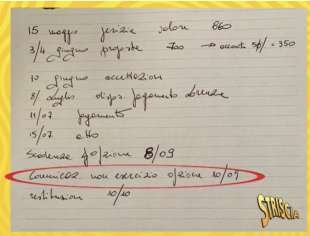 15 maggio perizia valore 860
3/4 giugno proposta 700 → sconto 50% = 350
10 giugno accettazione
8/ luglio dispo. pagamento
11/07 pagamento
15/07 atto
Scadenza opzione 8/09
Comunicaz. non esercizio opzione 10/09
restituzioni 10/10
STRISCIA